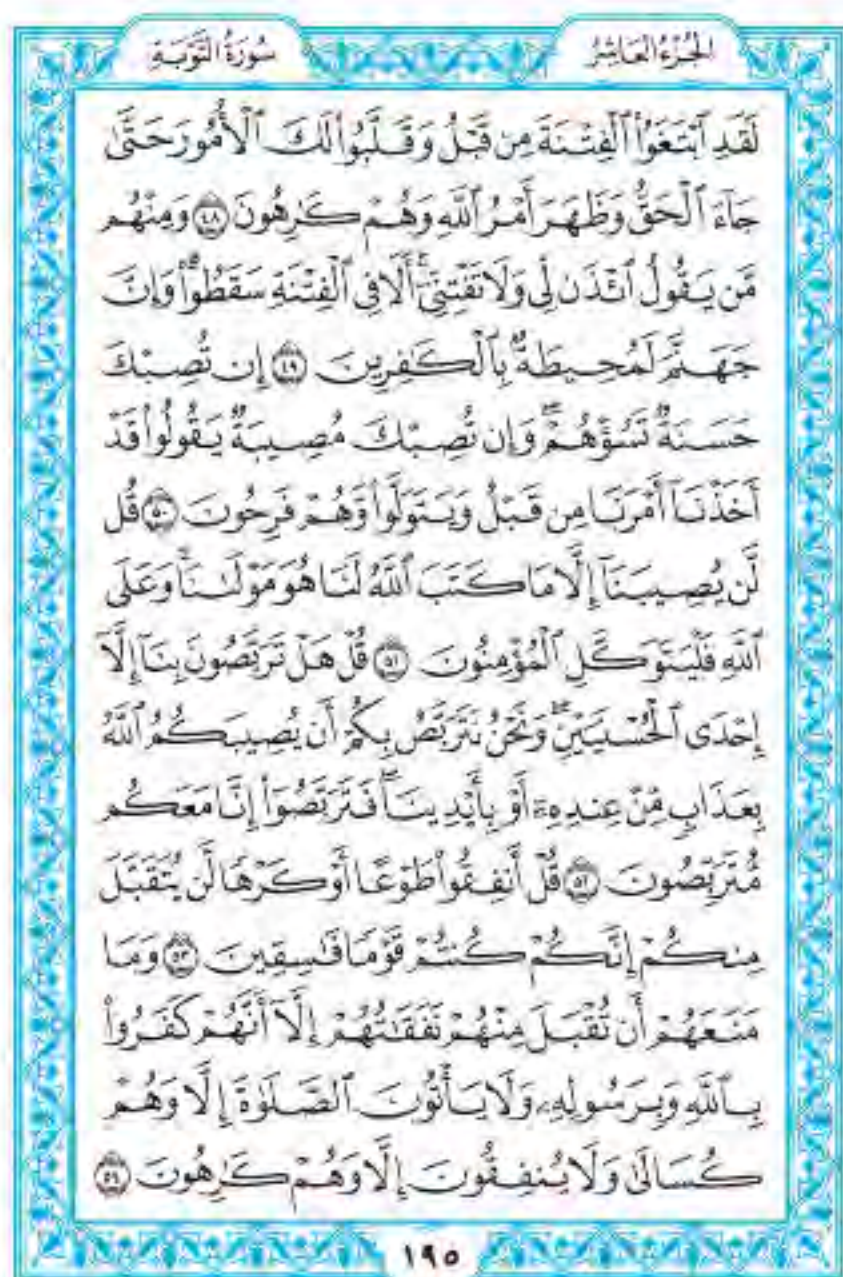 الجزء العاشر
سورة التوبة
لَقَدِ ٱبْتَغَوُا۟ ٱلْفِتْنَةَ مِن قَبْلُ وَقَلَّبُوا۟ لَكَ ٱلْأُمُورَ حَتَّىٰ
جَآءَ ٱلْحَقُّ وَظَهَرَ أَمْرُ ٱللَّهِ وَهُمْ كَٰرِهُونَ ٤٨ وَمِنْهُم
مَّن يَقُولُ ٱئْذَن لِّى وَلَا تَفْتِنِّىٓ ۚ أَلَا فِى ٱلْفِتْنَةِ سَقَطُوا۟ ۗ وَإِنَّ
جَهَنَّمَ لَمُحِيطَةٌۢ بِٱلْكَٰفِرِينَ ٤٩ إِن تُصِبْكَ
حَسَنَةٌ تَسُؤْهُمْ ۖ وَإِن تُصِبْكَ مُصِيبَةٌ يَقُولُوا۟ قَدْ
أَخَذْنَآ أَمْرَنَا مِن قَبْلُ وَيَتَوَلَّوا۟ وَّهُمْ فَرِحُونَ ٥٠ قُل
لَّن يُصِيبَنَآ إِلَّا مَا كَتَبَ ٱللَّهُ لَنَا هُوَ مَوْلَىٰنَا ۚ وَعَلَى
ٱللَّهِ فَلْيَتَوَكَّلِ ٱلْمُؤْمِنُونَ ٥١ قُلْ هَلْ تَرَبَّصُونَ بِنَآ إِلَّآ
إِحْدَى ٱلْحُسْنَيَيْنِ ۖ وَنَحْنُ نَتَرَبَّصُ بِكُمْ أَن يُصِيبَكُمُ ٱللَّهُ
بِعَذَابٍ مِّنْ عِندِهِۦٓ أَوْ بِأَيْدِينَا ۖ فَتَرَبَّصُوٓا۟ إِنَّا مَعَكُم
مُّتَرَبِّصُونَ ٥٢ قُلْ أَنفِقُوا۟ طَوْعًا أَوْ كَرْهًا لَّن يُتَقَبَّلَ
مِنكُمْ ۖ إِنَّكُمْ كُنتُمْ قَوْمًا فَٰسِقِينَ ٥٣ وَمَا
مَنَعَهُمْ أَن تُقْبَلَ مِنْهُمْ نَفَقَٰتُهُمْ إِلَّآ أَنَّهُمْ كَفَرُوا۟
بِٱللَّهِ وَبِرَسُولِهِۦ وَلَا يَأْتُونَ ٱلصَّلَوٰةَ إِلَّا وَهُمْ
كُسَالَىٰ وَلَا يُنفِقُونَ إِلَّا وَهُمْ كَٰرِهُونَ ٥٤
١٩٥